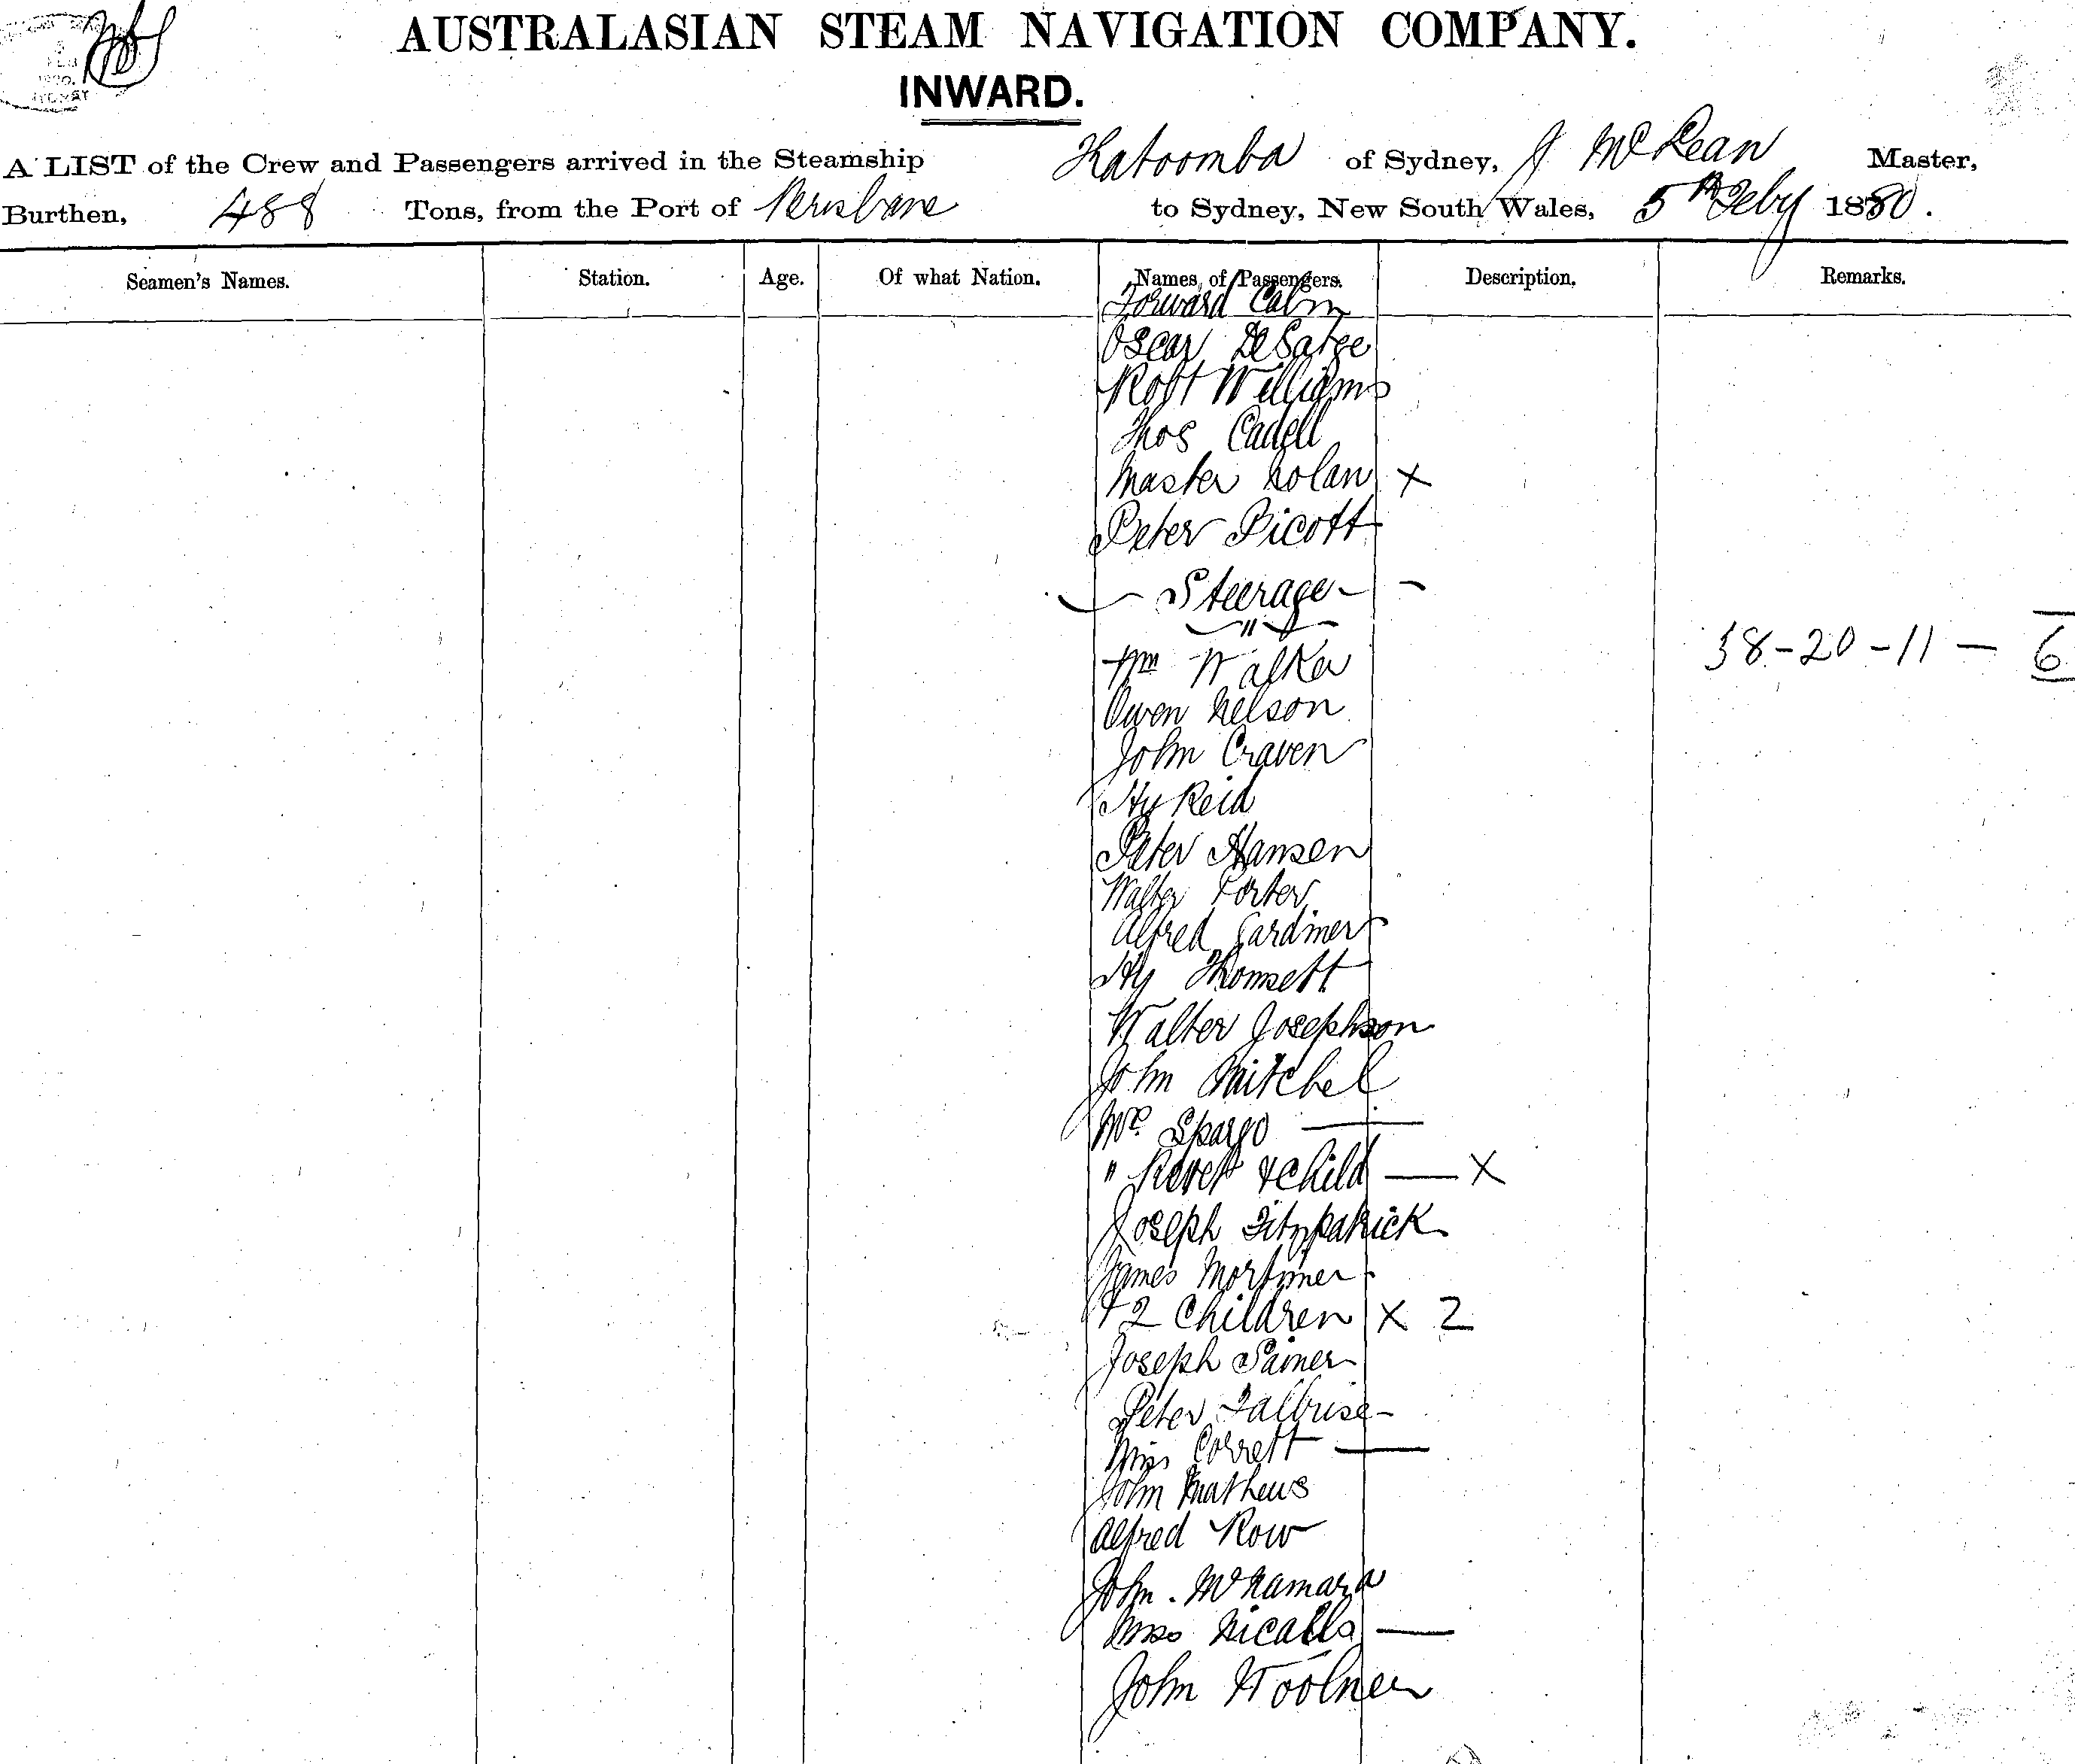 AUSTRALASIAN STEAM NAVIGATION COMPANY.
INWARD.
A LIST of the Crew and Passengers arrived in the Steamship Katoomba of Sydney, J McLean Master,
Burthen, 488 Tons, from the Port of Brisbane to Sydney, New South Wales, 5th Feby 1880.
Seamen's Names. Station. Age. Of what Nation. Names of Passengers. Description. Remarks.
Forward Cabin
Oscar De Satge
Robt Williams
Thos Cadell
Master Nolan X
Peter Picott
- Steerage - -
"
58-20-11 - 6
Wm Walker
Owen Nelson
John Craven
Hy Reid
Peter Hansen
Walter Porter
Alfred Gardiner
Hy Thomsett
Walter Josephson
John Mitchel
Mrs Spargo —
" & Child — X
Joseph Fitzpatrick
James Mortimer
+ 2 Children X 2
Joseph Sainer
Peter
Miss Corrett —
John Mathews
Alfred Row
John. McNamara
Miss Nicalls —
John Woolner